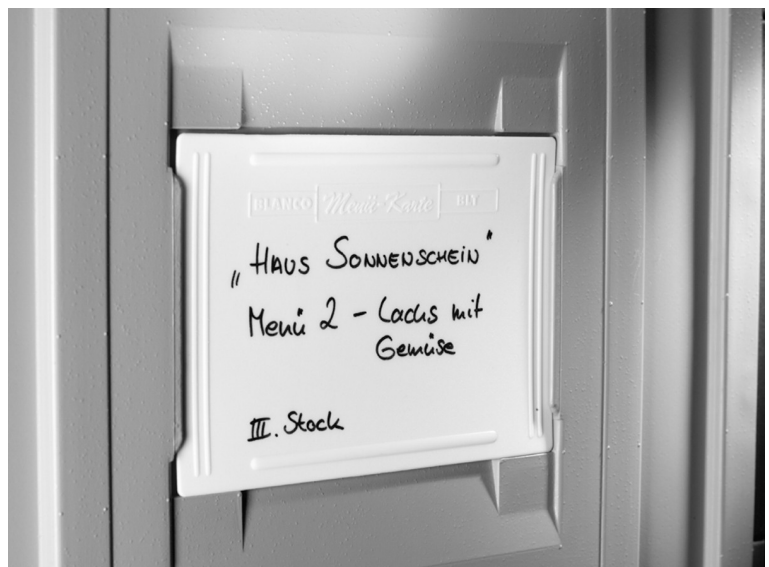 BLANCO Menü-Karte BLY
„HAUS SONNENSCHEIN"
Menü 2 - Lachs mit
Gemüse
III. Stock